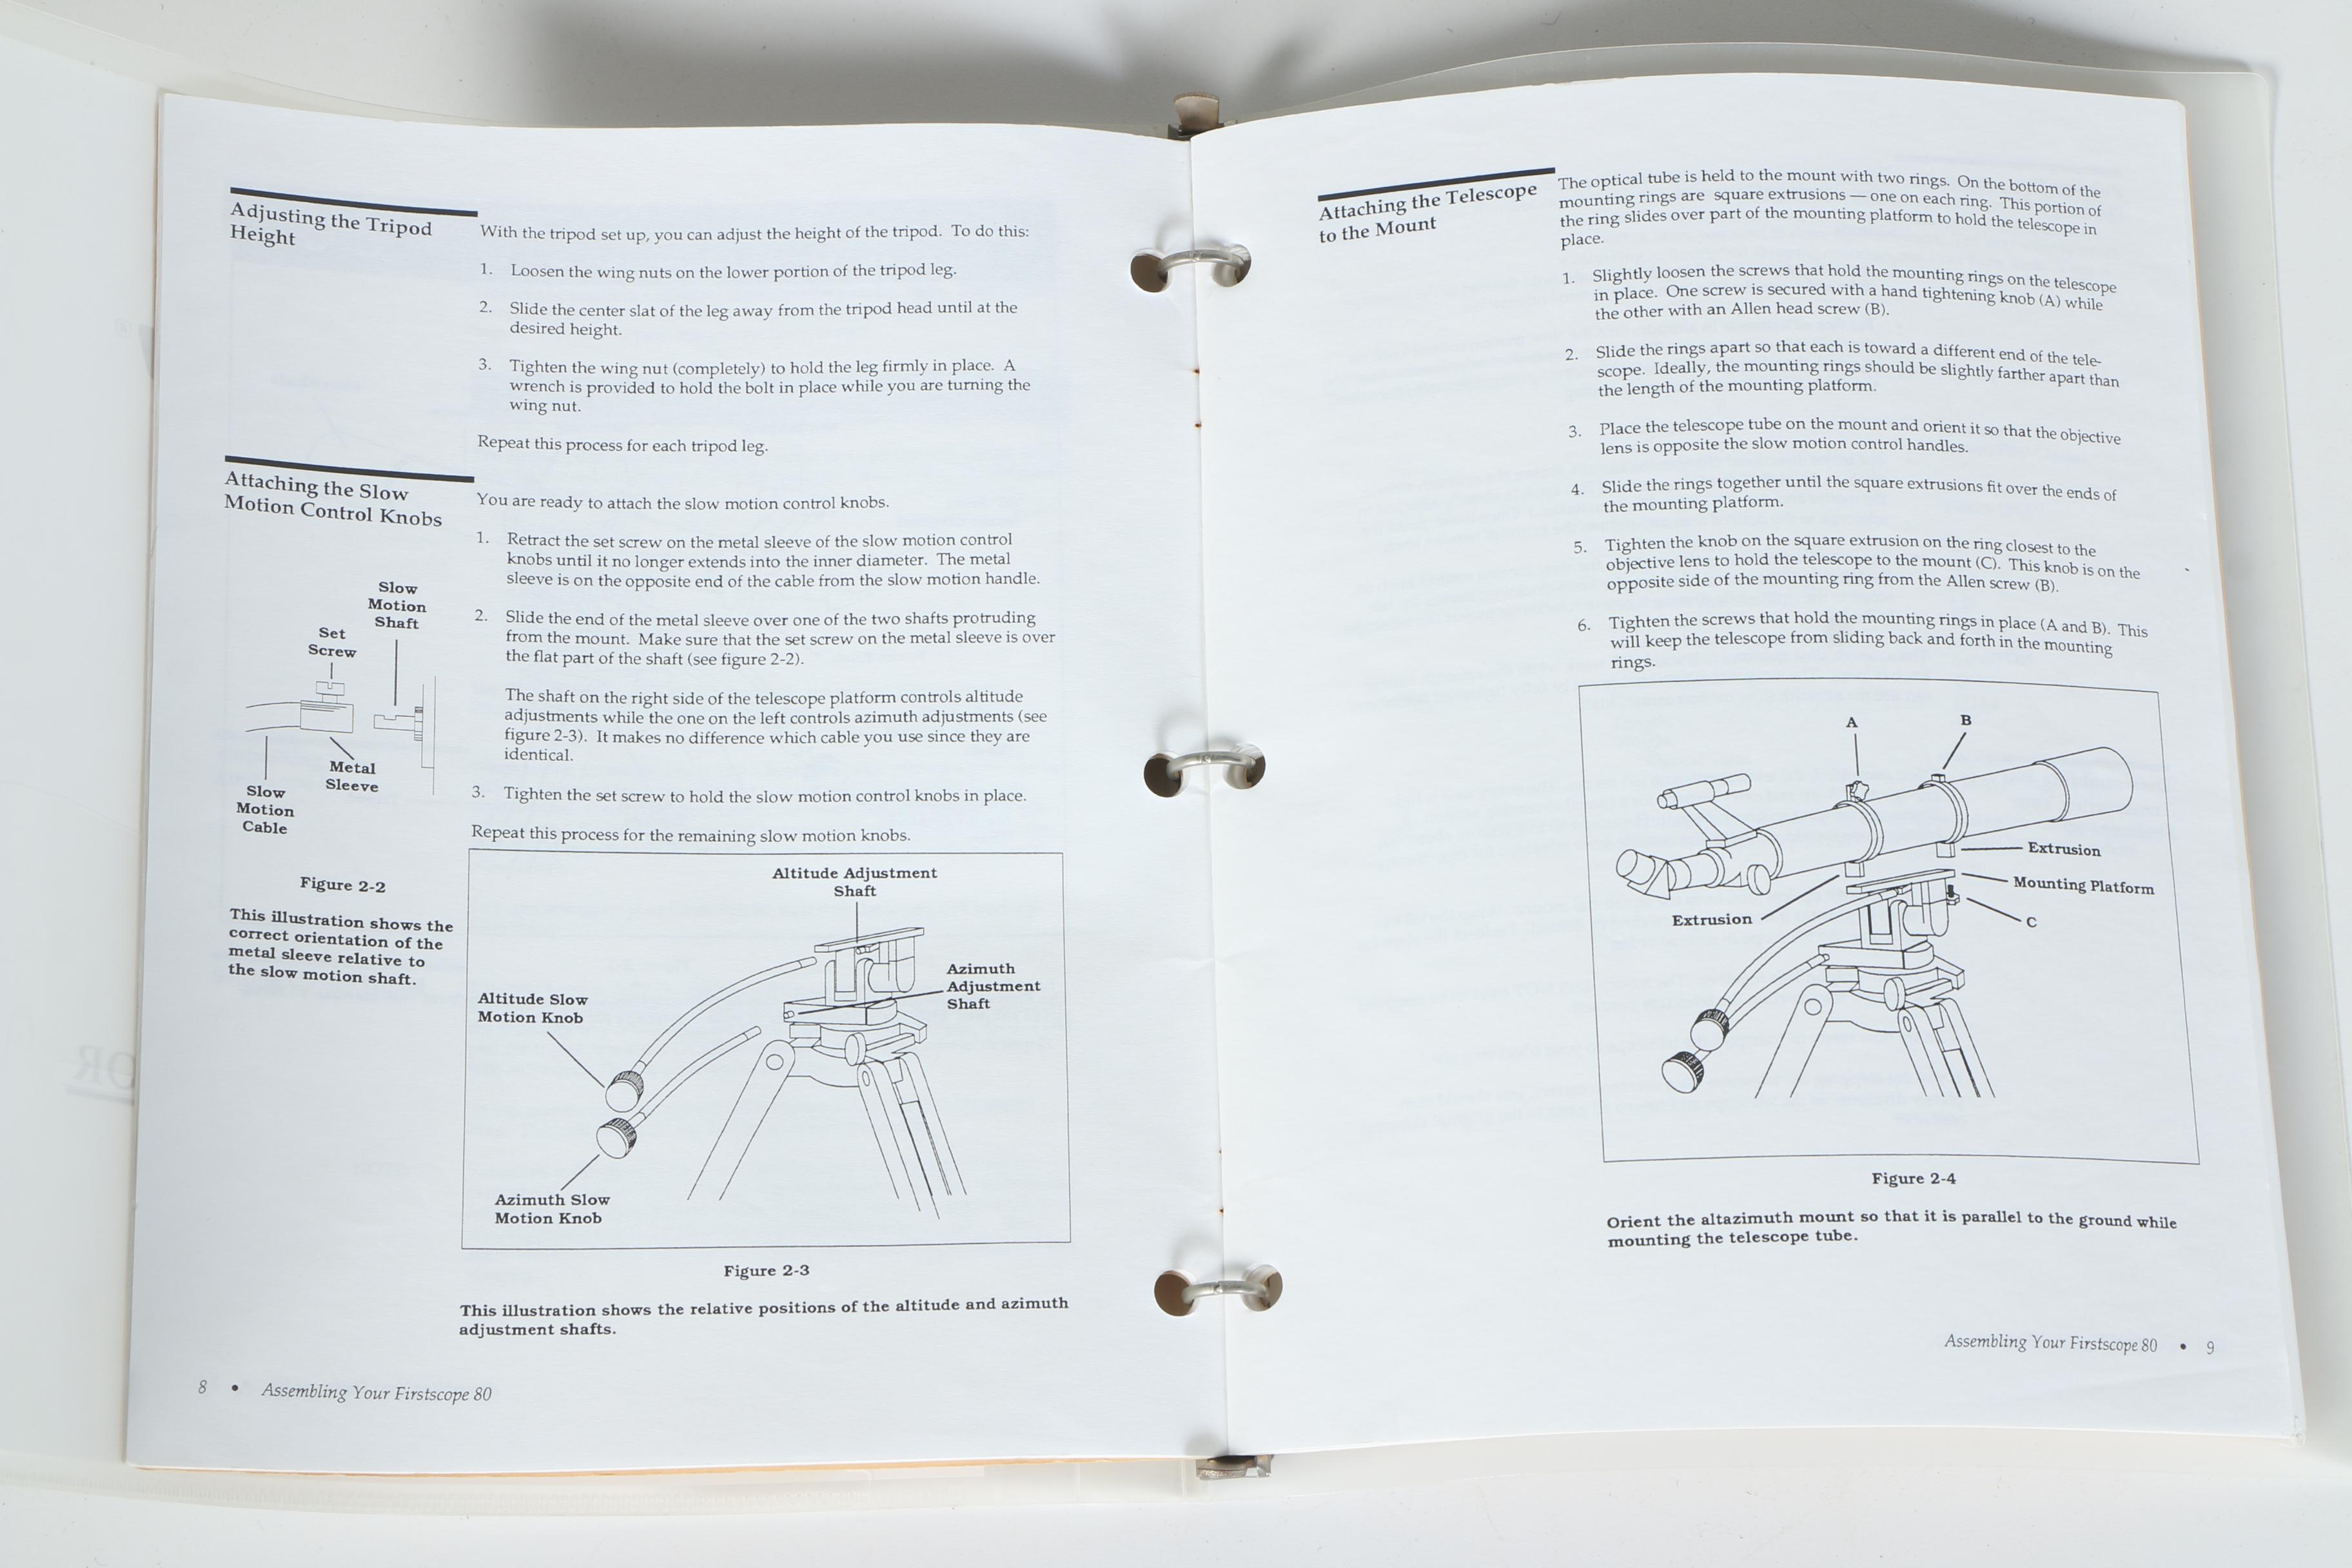 Adjusting the Tripod
Height
With the tripod set up, you can adjust the height of the tripod. To do this:
1. Loosen the wing nuts on the lower portion of the tripod leg.
2. Slide the center slat of the leg away from the tripod head until at the
desired height.
3. Tighten the wing nut (completely) to hold the leg firmly in place. A
wrench is provided to hold the bolt in place while you are turning the
wing nut.
Repeat this process for each tripod leg.
Attaching the Slow
Motion Control Knobs
You are ready to attach the slow motion control knobs.
1. Retract the set screw on the metal sleeve of the slow motion control
knobs until it no longer extends into the inner diameter. The metal
sleeve is on the opposite end of the cable from the slow motion handle.
2. Slide the end of the metal sleeve over one of the two shafts protruding
from the mount. Make sure that the set screw on the metal sleeve is over
the flat part of the shaft (see figure 2-2).
The shaft on the right side of the telescope platform controls altitude
adjustments while the one on the left controls azimuth adjustments (see
figure 2-3). It makes no difference which cable you use since they are
identical.
3. Tighten the set screw to hold the slow motion control knobs in place.
Repeat this process for the remaining slow motion knobs.
Slow
Motion
Shaft
Set
Screw
Metal
Sleeve
Slow
Motion
Cable
Figure 2-2
This illustration shows the
correct orientation of the
metal sleeve relative to
the slow motion shaft.
Altitude Adjustment
Shaft
Azimuth
Adjustment
Shaft
Altitude Slow
Motion Knob
Azimuth Slow
Motion Knob
Figure 2-3
This illustration shows the relative positions of the altitude and azimuth
adjustment shafts.
8 • Assembling Your Firstscope 80
Attaching the Telescope
to the Mount
The optical tube is held to the mount with two rings. On the bottom of the
mounting rings are square extrusions — one on each ring. This portion of
the ring slides over part of the mounting platform to hold the telescope in
place.
1. Slightly loosen the screws that hold the mounting rings on the telescope
in place. One screw is secured with a hand tightening knob (A) while
the other with an Allen head screw (B).
2. Slide the rings apart so that each is toward a different end of the tele-
scope. Ideally, the mounting rings should be slightly farther apart than
the length of the mounting platform.
3. Place the telescope tube on the mount and orient it so that the objective
lens is opposite the slow motion control handles.
4. Slide the rings together until the square extrusions fit over the ends of
the mounting platform.
5. Tighten the knob on the square extrusion on the ring closest to the
objective lens to hold the telescope to the mount (C). This knob is on the
opposite side of the mounting ring from the Allen screw (B).
6. Tighten the screws that hold the mounting rings in place (A and B). This
will keep the telescope from sliding back and forth in the mounting
rings.
A
B
Extrusion
Mounting Platform
Extrusion
C
Figure 2-4
Orient the altazimuth mount so that it is parallel to the ground while
mounting the telescope tube.
Assembling Your Firstscope 80 • 9